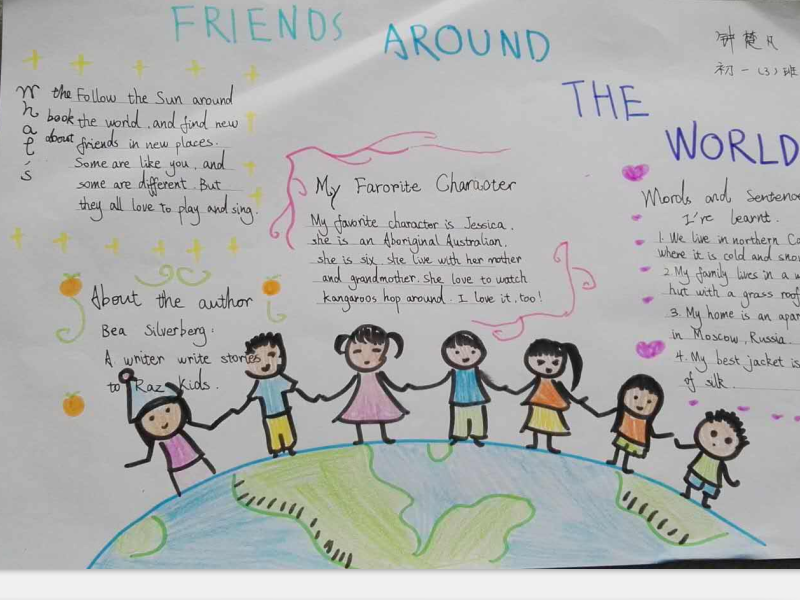 FRIENDS AROUND
THE
WORLD
初一(3)班
What's the book about
Follow the Sun around
the world, and find new
friends in new places.
Some are like you, and
some are different. But
they all love to play and sing.
My Farorite Character
My favorite character is Jessica,
she is an Aboriginal Australian,
she is six, she live with her mother
and grandmother. She love to watch
kangaroos hop around. I love it, too!
About the author
Bea Silverberg:
A writer write stories
to Raz Kids.
Words and
I've learnt.
1. We live in northern
where it is cold and
2. My family lives in a
hut with a grass roof
3. My home is an
in Moscow, Russia
4. My best jacket is
of silk.